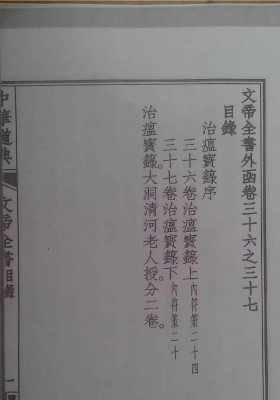 文帝全書外函卷三十六之三十七
目錄
治瘟寶籙序
三十六卷治瘟寶籙上內符篆二十四
三十七卷治瘟寶籙下內符篆二十
治瘟寶籙。大洞清河老人授。分二卷。
中華道典
文帝全書目錄
一